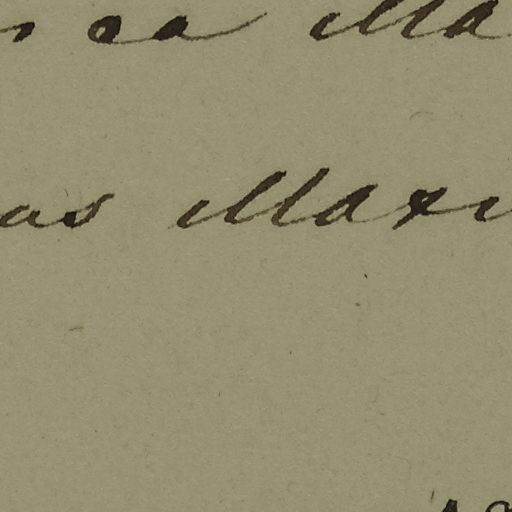 ca Ma
as Maxi